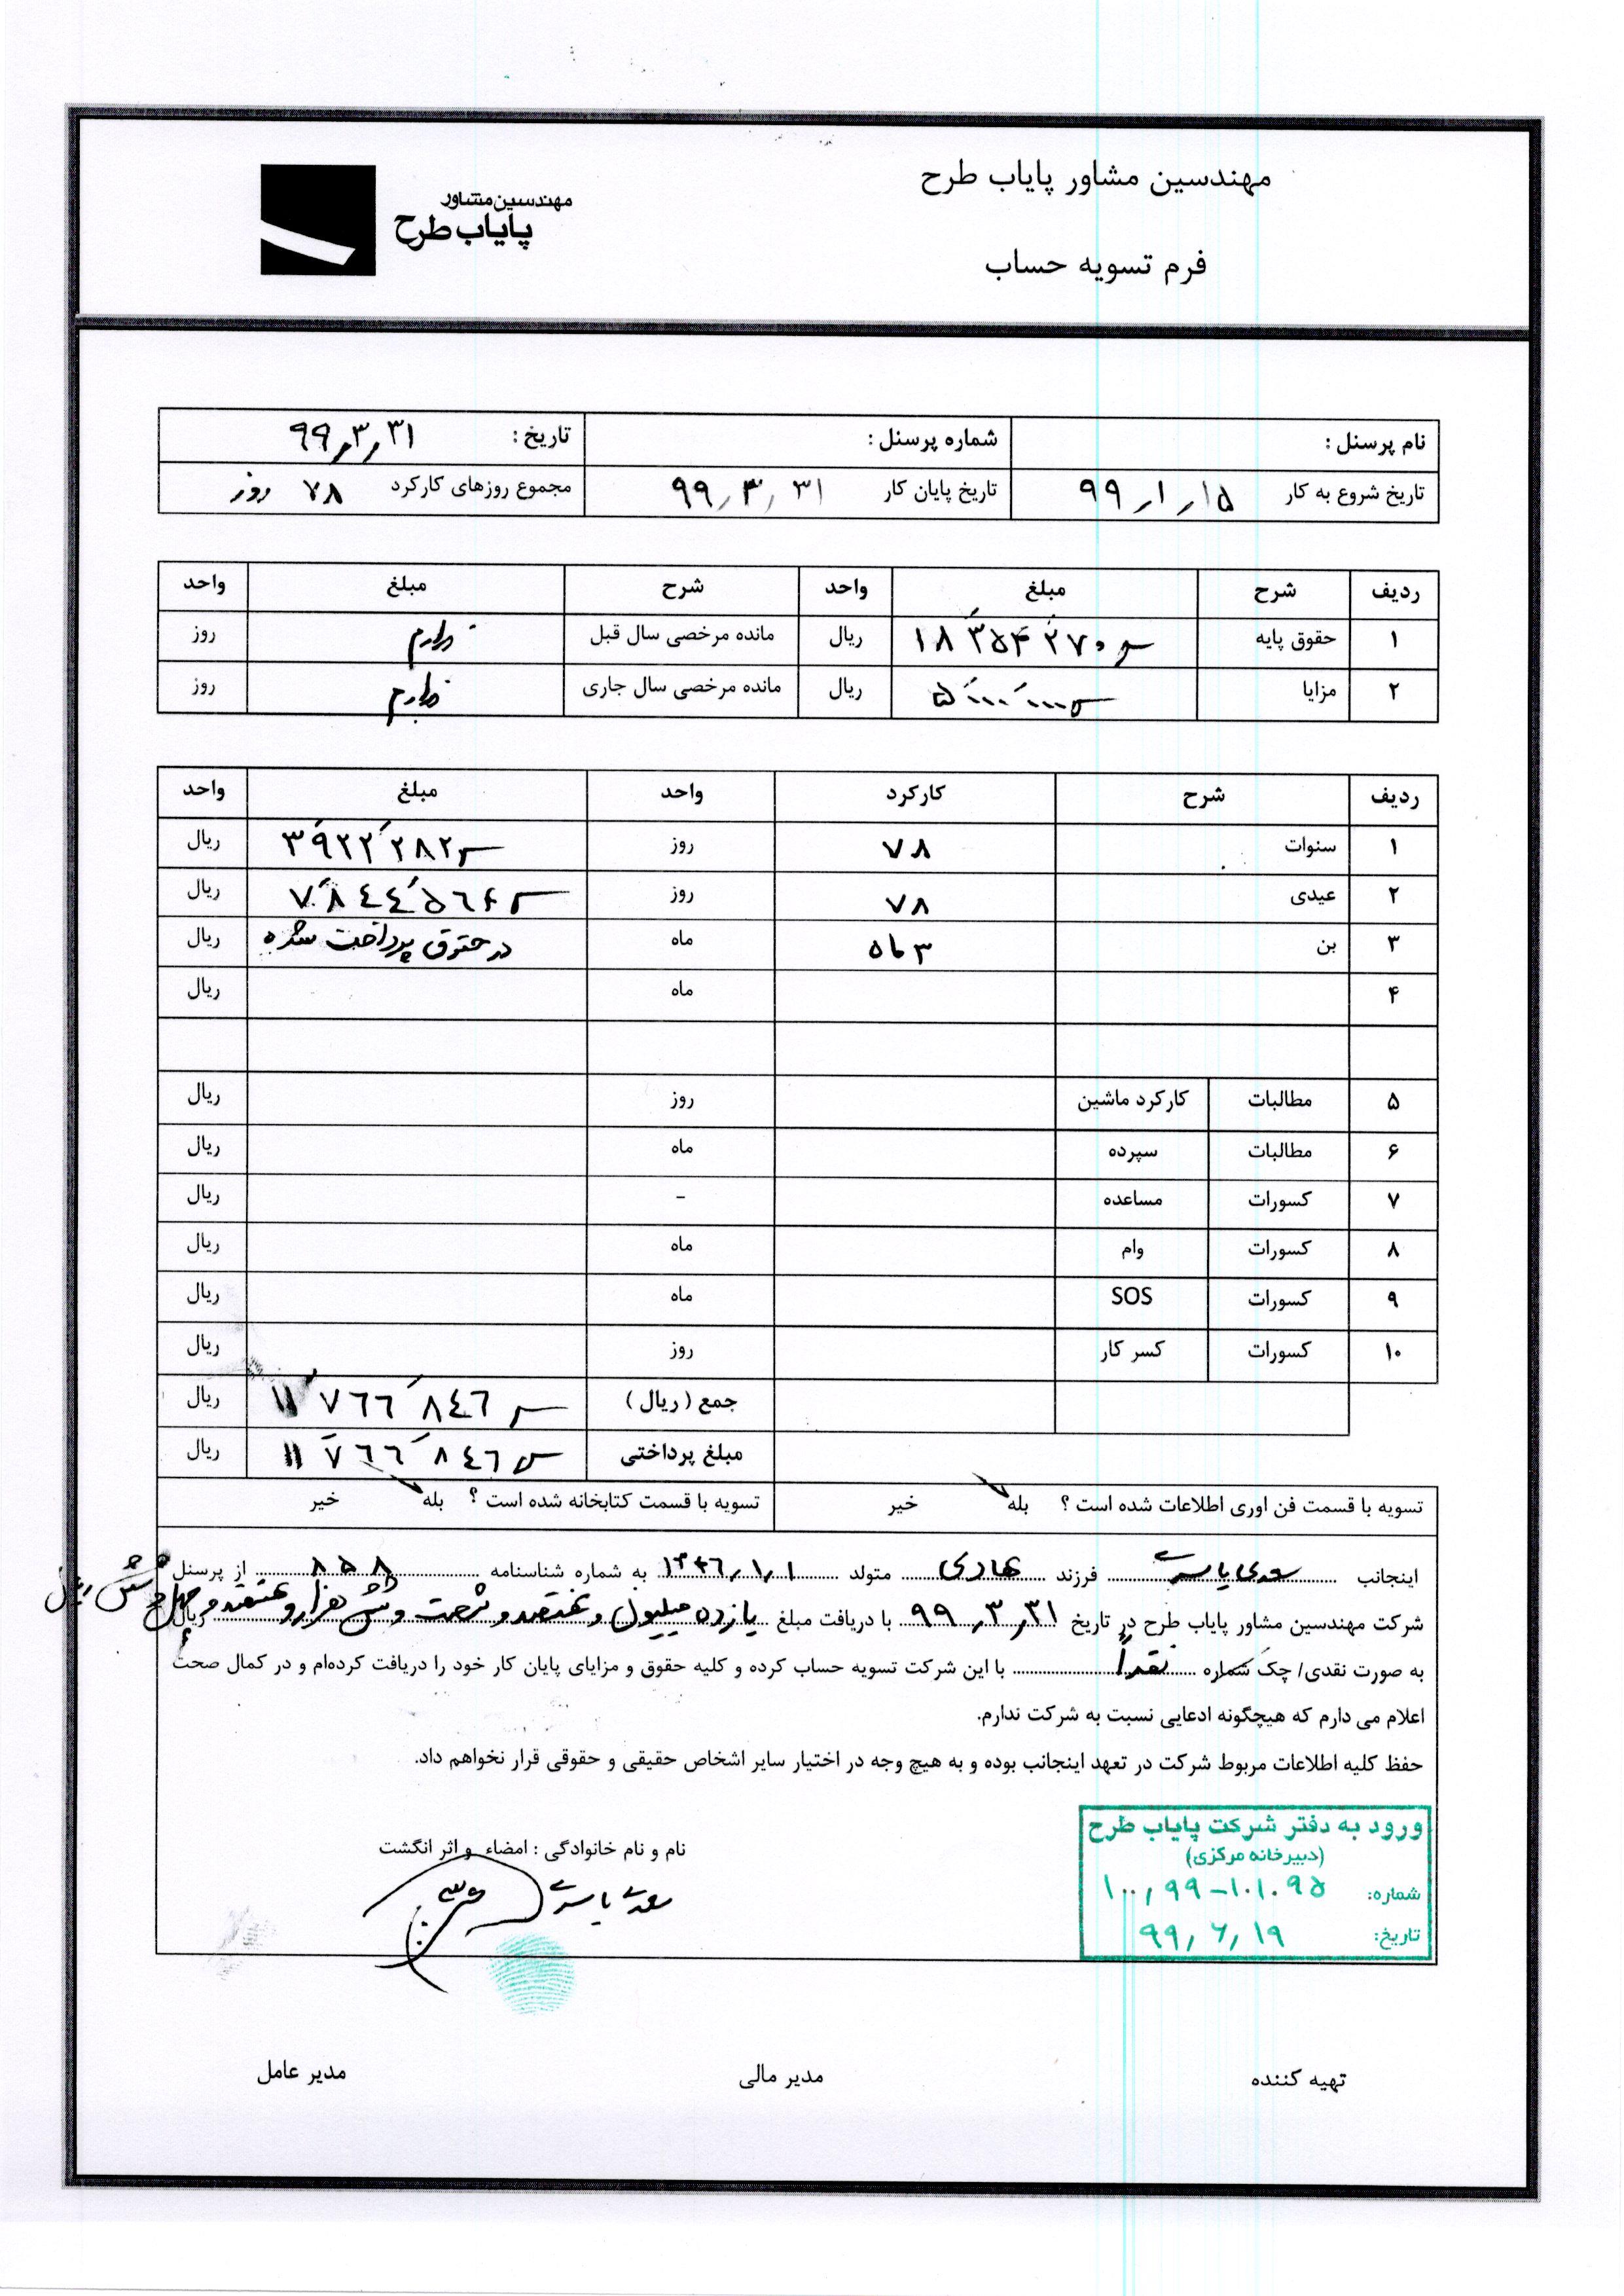 مهندسین مشاور پایاب طرح
مهندسین مشاور
پایاب طرح
فرم تسویه حساب
نام پرسنل : شماره پرسنل : تاریخ : ۹۹٫۳٫۳۱
تاریخ شروع به کار ۹۹٫۱٫۱۵ تاریخ پایان کار ۹۹٫۳٫۳۱ مجموع روزهای کارکرد ۷۸ روز
ردیف شرح مبلغ واحد شرح مبلغ واحد
۱ حقوق پایه ۱۸٬۳۵۴٬۲۷۰ ریال مانده مرخصی سال قبل ندارم روز
۲ مزایا ۵٬۰۰۰٬۰۰۰ ریال مانده مرخصی سال جاری ندارم روز
ردیف شرح کارکرد واحد مبلغ واحد
۱ سنوات ۷۸ روز ۳٬۹۲۲٬۲۸۲ ریال
۲ عیدی ۷۸ روز ۷٬۸۴۴٬۵۶۴ ریال
۳ بن ۳ ماه ماه در حقوق پرداخت شده ریال
۴ ماه ریال
۵ مطالبات کارکرد ماشین روز ریال
۶ مطالبات سپرده ماه ریال
۷ کسورات مساعده - ریال
۸ کسورات وام ماه ریال
۹ کسورات SOS ماه ریال
۱۰ کسورات کسر کار روز ریال
جمع ( ریال ) ۱۱٬۷۶۶٬۸۴۶ ریال
مبلغ پرداختی ۱۱٬۷۶۶٬۸۴۶ ریال
تسویه با قسمت فن اوری اطلاعات شده است ؟ بله خیر تسویه با قسمت کتابخانه شده است ؟ بله خیر
اینجانب فرزند هادی متولد ۱۳۴۶٫۱٫۱ به شماره شناسنامه ۸۵۸ از پرسنل
شرکت مهندسین مشاور پایاب طرح در تاریخ ۹۹٫۳٫۳۱ با دریافت مبلغ یازده میلیون و هفتصد و شصت و شش هزار و هشتصد و چهل و شش ریال ریال
به صورت نقدی/ چک شماره نقداً با این شرکت تسویه حساب کرده و کلیه حقوق و مزایای پایان کار خود را دریافت کرده‌ام و در کمال صحت
اعلام می دارم که هیچگونه ادعایی نسبت به شرکت ندارم.
حفظ کلیه اطلاعات مربوط شرکت در تعهد اینجانب بوده و به هیچ وجه در اختیار سایر اشخاص حقیقی و حقوقی قرار نخواهم داد.
نام و نام خانوادگی : امضاء و اثر انگشت
ورود به دفتر شرکت پایاب طرح
(دبیرخانه مرکزی)
شماره: ۱۰۰٫۹۹-۱۰۱۰۹۵
تاریخ: ۹۹٫۶٫۱۹
تهیه کننده مدیر مالی مدیر عامل